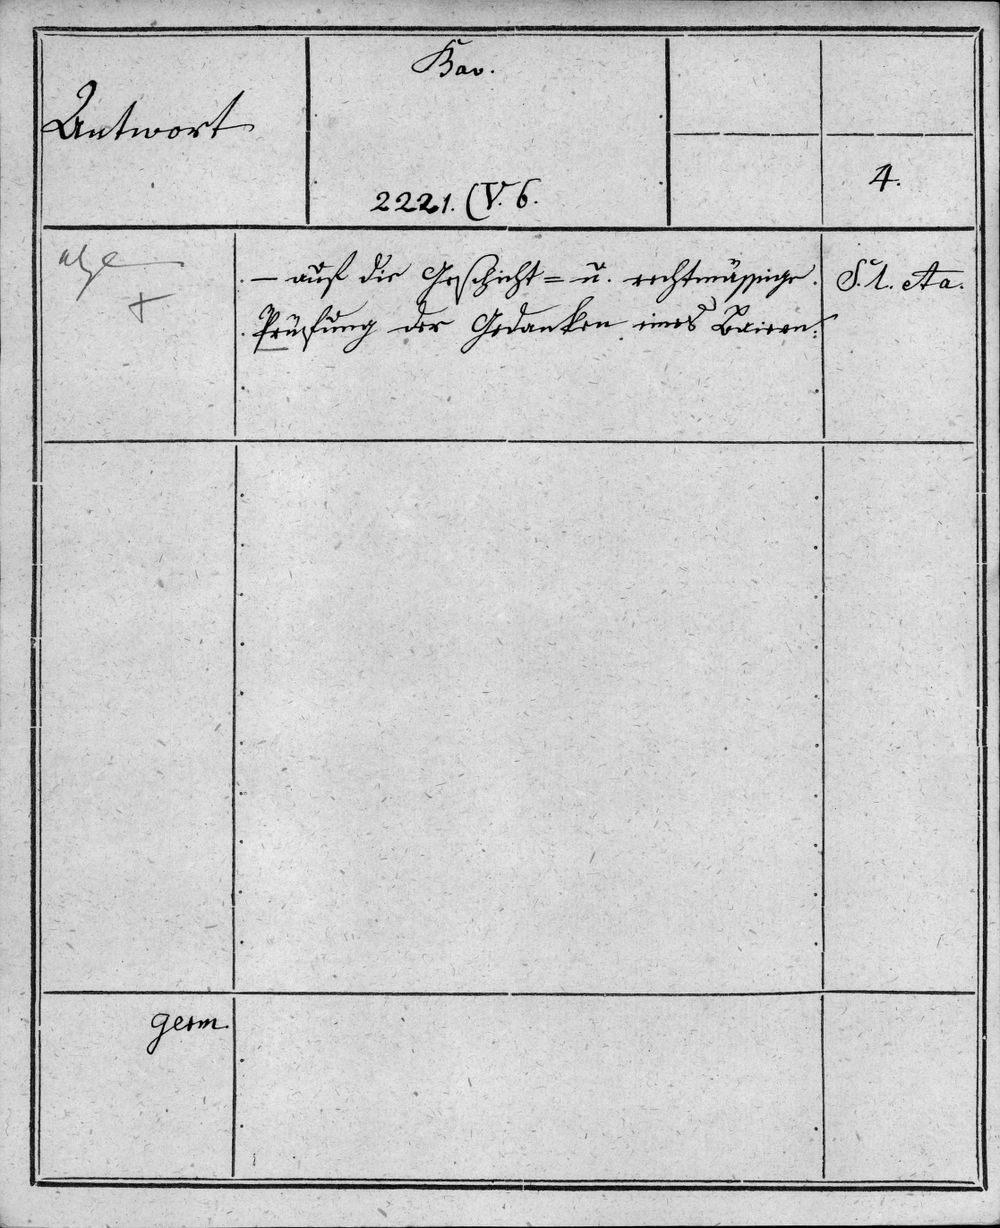 Bav.
Antwort
4.
2221. (V. 6.
— auf die Geschicht= u. rechtmässige
Prüfung der Gedanken eines Baiern.
S. l. Aa.
germ.